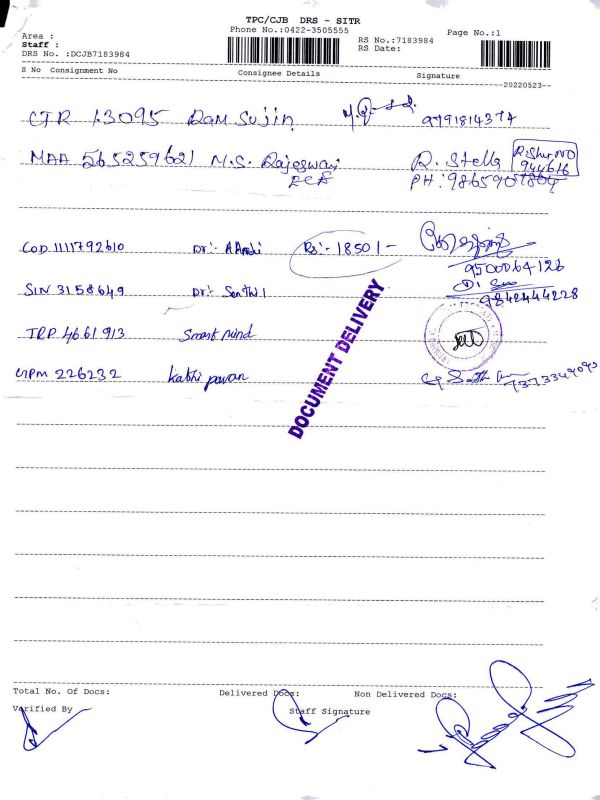 TPC/CJB DRS - SITR
Phone No.:0422-3505555
Page No.:1
Area :
RS No.:7183984
Staff :
RS Date:
DRS No. :DCJB7183984
S No Consignment No Consignee Details Signature
20220523
CTR 13095 Ram Sujin 9791814374
MAA 565259621 M.S. Rajeswari R. Stella
PH: 9865907804
COD 1111792610 Dr:- Rs:- 18501-
9500064126
SLN 3158649 Dr:-
9842444228
TRP 4661913 Smart mind
226232 Kathi pavan
DOCUMENT DELIVERY
Total No. Of Docs: Delivered Docs: Non Delivered Docs:
Verified By Staff Signature